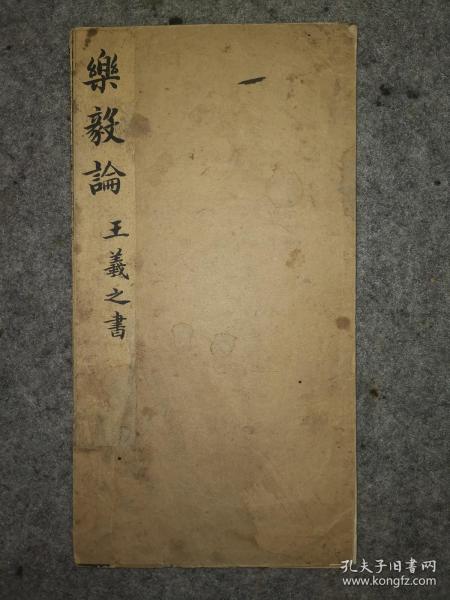 樂毅論
王羲之書
孔夫子旧书网
www.kongfz.com